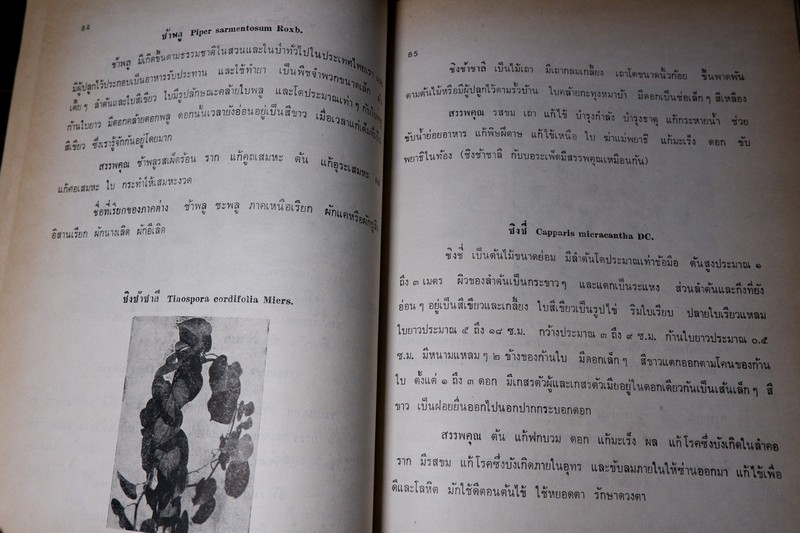 84
ช้าพลู Piper sarmentosum Roxb.
ช้าพลู มีเกิดขึ้นตามธรรมชาติในสวนและในป่าทั่วไปในประเทศไทยเรา
มีผู้ปลูกไว้ประกอบเป็นอาหารรับประทาน และใช้ทำยา เป็นพืชจำพวกขนาดเล็ก
เตี้ยๆ ลำต้นและใบสีเขียว ใบมีรูปลักษณะคล้ายใบพลู และโตประมาณเท่าๆ
ก้านใบยาว มีดอกคล้ายดอกพลู ดอกนั้นเวลายังอ่อนอยู่เป็นสีขาว เมื่อเวลาแก่เต็มที่เป็น
สีเขียว ซึ่งเรารู้จักกันอยู่โดยมาก
สรรพคุณ ช้าพลูรสเผ็ดร้อน ราก แก้คูถเสมหะ ต้น แก้อุระเสมหะ
แก้ศอเสมหะ ใบ กระทำให้เสมหะงวด
ชื่อที่เรียกของภาคต่าง ช้าพลู ชะพลู ภาคเหนือเรียก ผักแคหรือผัก
อิสานเรียก ผักนางเลิด ผักอีเลิด
ชิงช้าชาลี Tiaospora cordifolia Miers.
85
ชิงช้าชาลี เป็นไม้เถา มีเถากลมเกลี้ยง เถาโตขนาดนิ้วก้อย ขึ้นพาดพัน
ตามต้นไม้หรือมีผู้ปลูกไว้ตามรั้วบ้าน ใบคล้ายกะทุงหมาบ้า มีดอกเป็นช่อเล็กๆ สีเหลือง
สรรพคุณ รสขม เถา แก้ไข้ บำรุงกำลัง บำรุงธาตุ แก้กระหายน้ำ ช่วย
ขับน้ำย่อยอาหาร แก้พิษฝีดาษ แก้ไข้เหนือ ใบ ฆ่าแม่พยาธิ แก้มะเร็ง ดอก ขับ
พยาธิในท้อง (ชิงช้าชาลี กับบอระเพ็ดมีสรรพคุณเหมือนกัน)
ชิงชี่ Capparis micracantha DC.
ชิงชี่ เป็นต้นไม้ขนาดย่อม มีลำต้นโตประมาณเท่าข้อมือ ต้นสูงประมาณ ๑
ถึง ๓ เมตร ผิวของลำต้นเป็นกระขาวๆ และแตกเป็นระแหง ส่วนลำต้นและกิ่งที่ยัง
อ่อนๆ อยู่เป็นสีเขียวและเกลี้ยง ใบสีเขียวเป็นรูปไข่ ริมใบเรียบ ปลายใบเรียวแหลม
ใบยาวประมาณ ๕ ถึง ๑๘ ซ.ม. กว้างประมาณ ๓ ถึง ๙ ซ.ม. ก้านใบยาวประมาณ ๐.๕
ซ.ม. มีหนามแหลมๆ ๒ ข้างของก้านใบ มีดอกเล็กๆ สีขาวแตกออกตามโคนของก้าน
ใบ ตั้งแต่ ๑ ถึง ๓ ดอก มีเกสรตัวผู้และเกสรตัวเมียอยู่ในดอกเดียวกันเป็นเส้นเล็กๆ สี
ขาว เป็นฝอยยื่นออกไปนอกปากกระบอกดอก
สรรพคุณ ต้น แก้ฟกบวม ดอก แก้มะเร็ง ผล แก้โรคซึ่งบังเกิดในลำคอ
ราก มีรสขม แก้โรคซึ่งบังเกิดภายในอุทร และขับลมภายในให้ซ่านออกมา แก้ไข้เพื่อ
ดีและโลหิต มักใช้ดีตอนต้นไข้ ใช้หยอดตา รักษาดวงตา